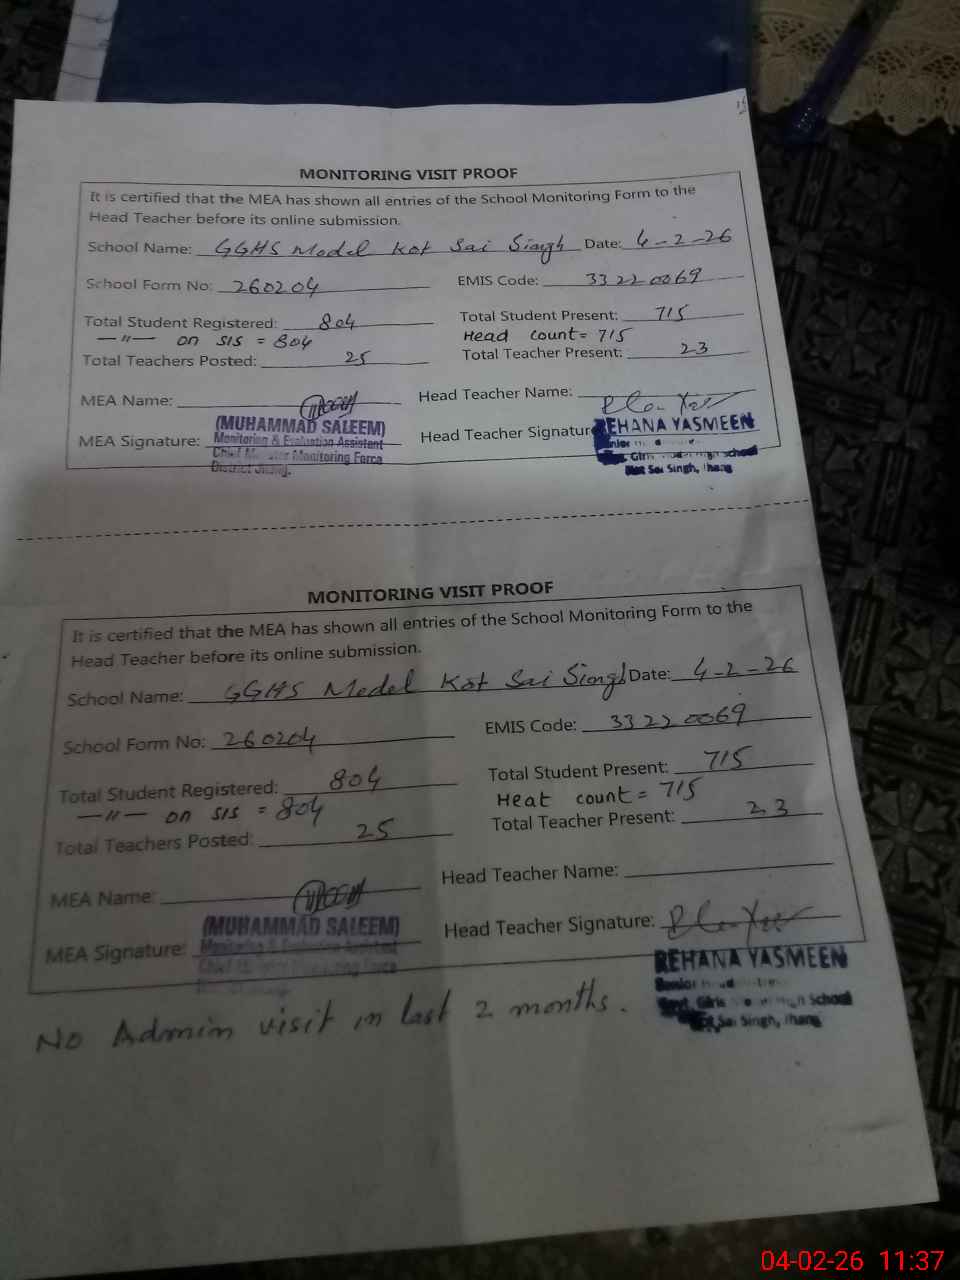 MONITORING VISIT PROOF
It is certified that the MEA has shown all entries of the School Monitoring Form to the
Head Teacher before its online submission.
School Name: GGHS Model Kot Sai Singh Date: 4-2-26
School Form No: 260204 EMIS Code: 33220069
Total Student Registered: 804 Total Student Present: 715
—"— on SIS = 804 Head count = 715
Total Teachers Posted: 25 Total Teacher Present: 23
MEA Name: Head Teacher Name:
(MUHAMMAD SALEEM) REHANA YASMEEN
MEA Signature: Head Teacher Signature
Monitoring & Evaluation Assistant
Chief Minister Monitoring Force
District Jhang.
Girls High School
Kot Sai Singh, Jhang
MONITORING VISIT PROOF
It is certified that the MEA has shown all entries of the School Monitoring Form to the
Head Teacher before its online submission.
School Name: GGHS Model Kot Sai Singh Date: 4-2-26
School Form No: 260204 EMIS Code: 33220069
Total Student Registered: 804 Total Student Present: 715
—"— on SIS = 804 Heat count = 715
Total Teachers Posted: 25 Total Teacher Present: 23
MEA Name: Head Teacher Name:
(MUHAMMAD SALEEM)
MEA Signature: Head Teacher Signature:
Monitoring & Evaluation Assistant
Chief Monitoring Force
REHANA YASMEEN
Senior
Govt. Girls High School
Kot Sai Singh, Jhang
No Admin visit in last 2 months.
04-02-26 11:37